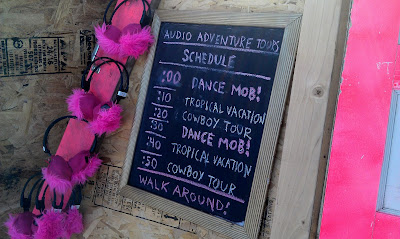 AUDIO ADVENTURE TOURS
SCHEDULE
:00 DANCE MOB!
:10 TROPICAL VACATION
:20 COWBOY TOUR
:30 DANCE MOB!
:40 TROPICAL VACATION
:50 COWBOY TOUR
WALK AROUND!